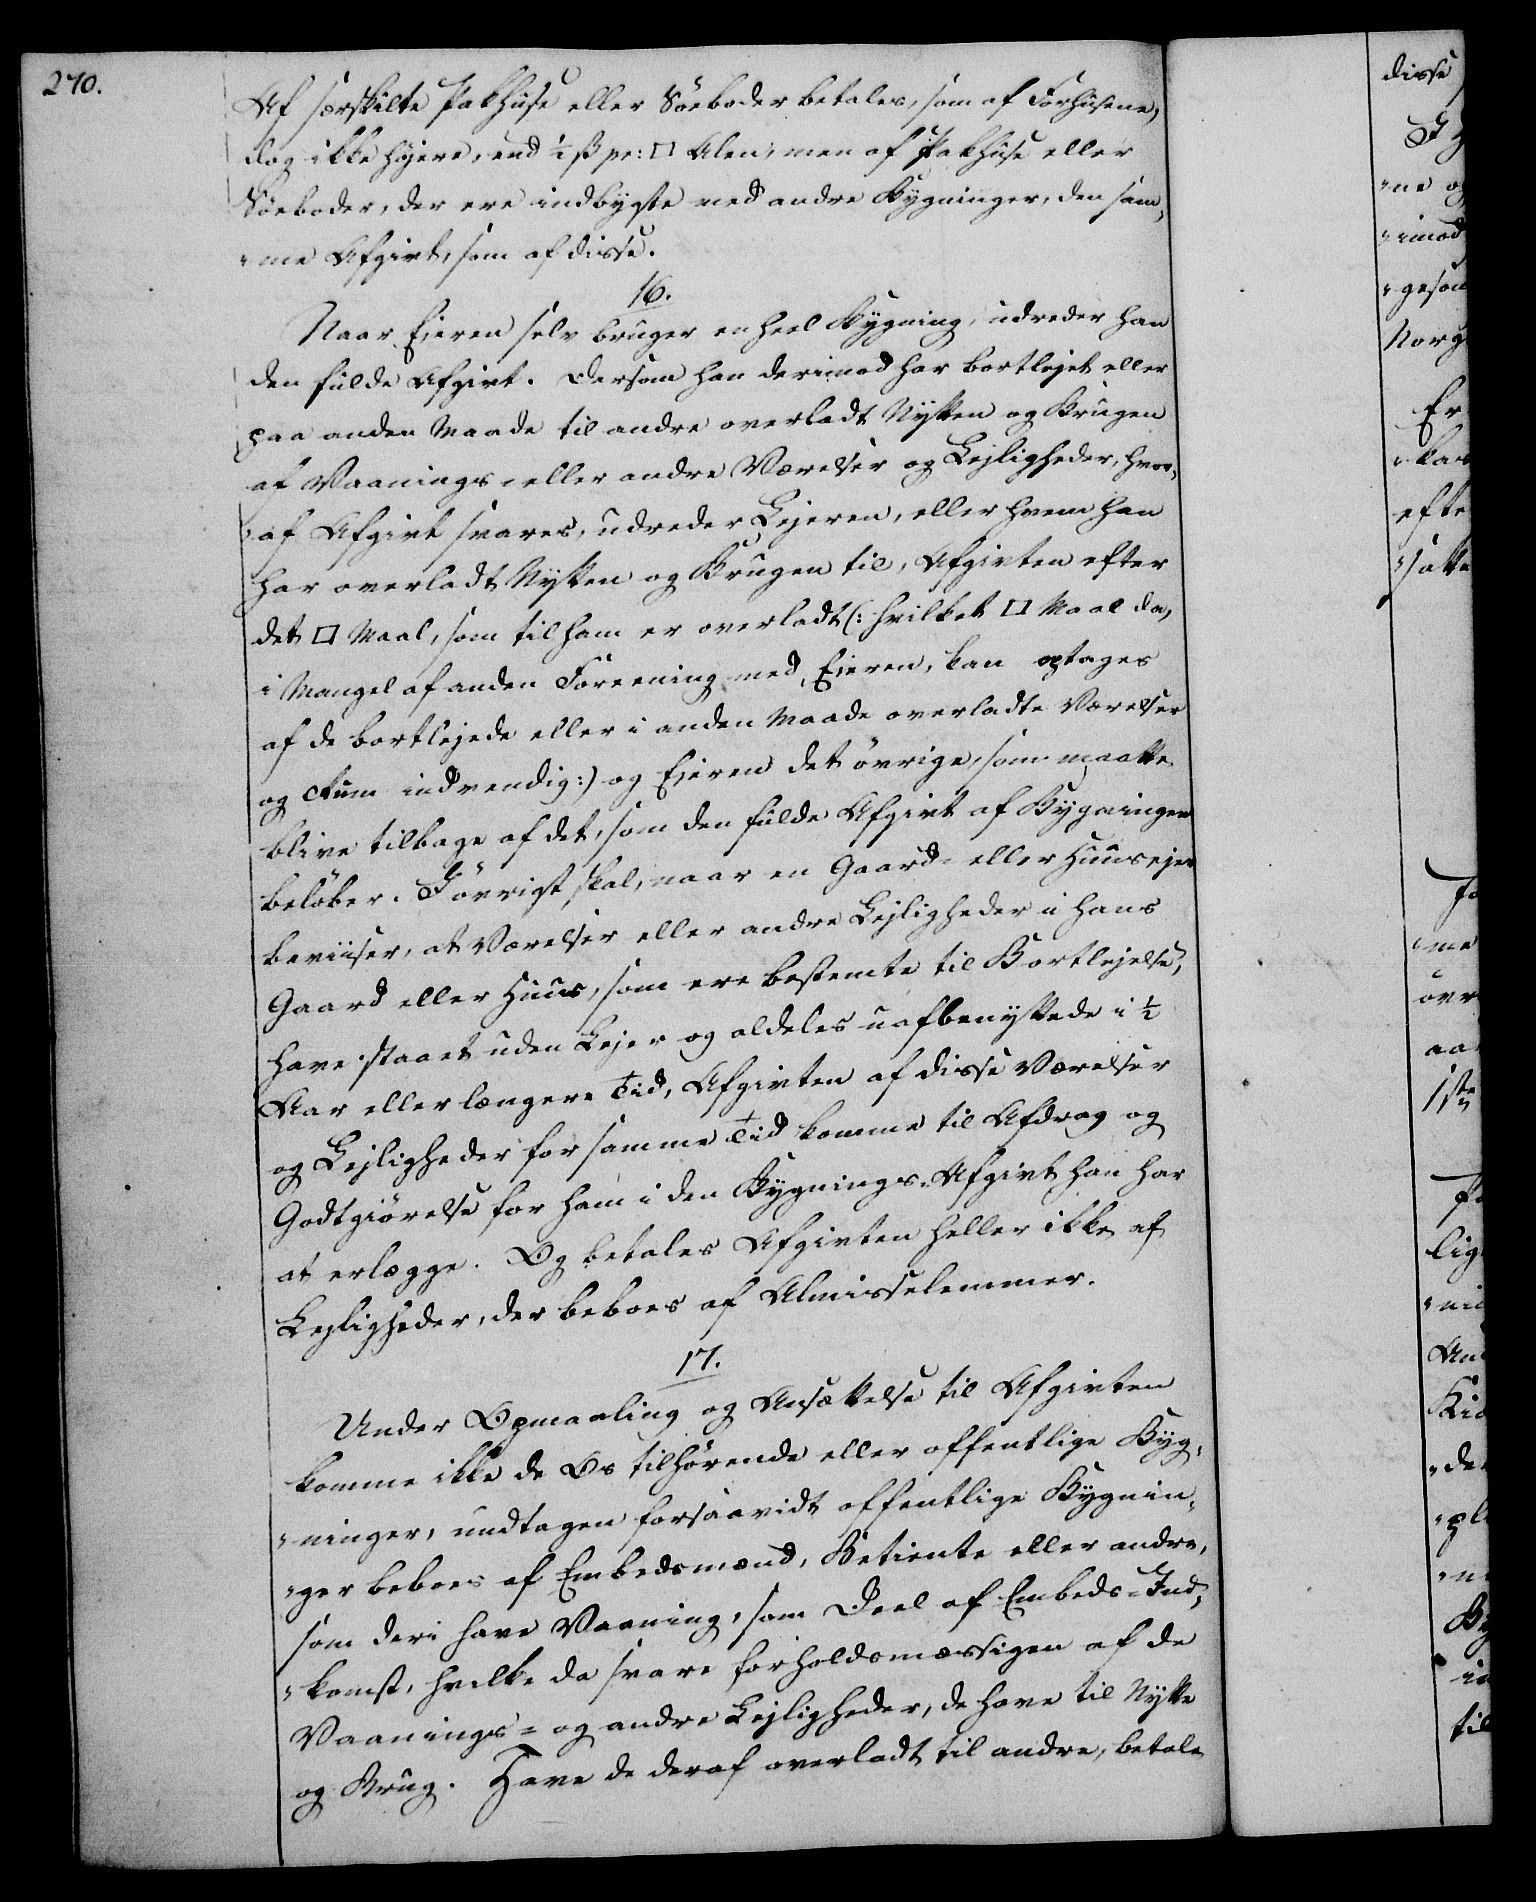 270.
Af særskilte Pakhuse eller Söeboder betales, som af Forhusene,
dog ikke höjere, end ½ ß pr: □ Alen; men af Pakhuse eller
Söeboder, der ere indbygte med andre Bygninger, den sam„
„me Afgivt, som af disse.
16.
Naar Ejeren selv bruger en heel Bygning, udreder han
den fulde Afgivt. Dersom han derimod har bortlejet eller
paa anden Maade til andre overladt Nytten og Brugen
af Vaanings- eller andre Værelser og Lejligheder, hvor„
„af Afgivt svares, udreder Lejeren, eller hvem han
har overladt Nytten og Brugen til, Afgivten efter
det □ Maal, som til ham er overladt (: hvilket □ Maal da,
i Mangel af anden Foreening med Ejeren, kan optages
af de bortlejede eller i anden Maade overladte Værelser
og Rum indvendig :) og Ejeren det övrige, som maatte
blive tilbage af det, som den fulde Afgivt af Bygningen
belöber. Iövrigt skal, naar en Gaard- eller Huusejer
beviiser, at Værelser eller andre Lejligheder i hans
Gaard eller Huus, som ere bestemte til Bortlejelse,
have staaet uden Lejer og aldeles uafbenyttede i ½
Aar eller længere Tid, Afgivten af disse Værelser
og Lejligheder for samme Tid komme til Afdrag og
Godtgiörelse for ham i den Bygnings-Afgivt han har
at erlægge. Og betales Afgivten heller ikke af
Lejligheder, der beboes af Almisselemmer.
17.
Under Opmaaling og Ansættelse til Afgivten
komme ikke de Os tilhörende eller offentlige Byg„
„ninger, undtagen forsaavidt offentlige Bygnin„
„ger beboes af Embedsmænd, Betiente eller andre,
som deri have Vaaning, som Deel af Embeds-Ind„
„komst, hvilke da svare forholdsmæssigen af de
Vaanings- og andre Lejligheder, de have til Nytte
og Brug. Have de deraf overladt til andre, betale
disse
„ne
„imod
Norg
Er
efte
„satte
„me
övr
aa
1ste
lig
An
„de
til